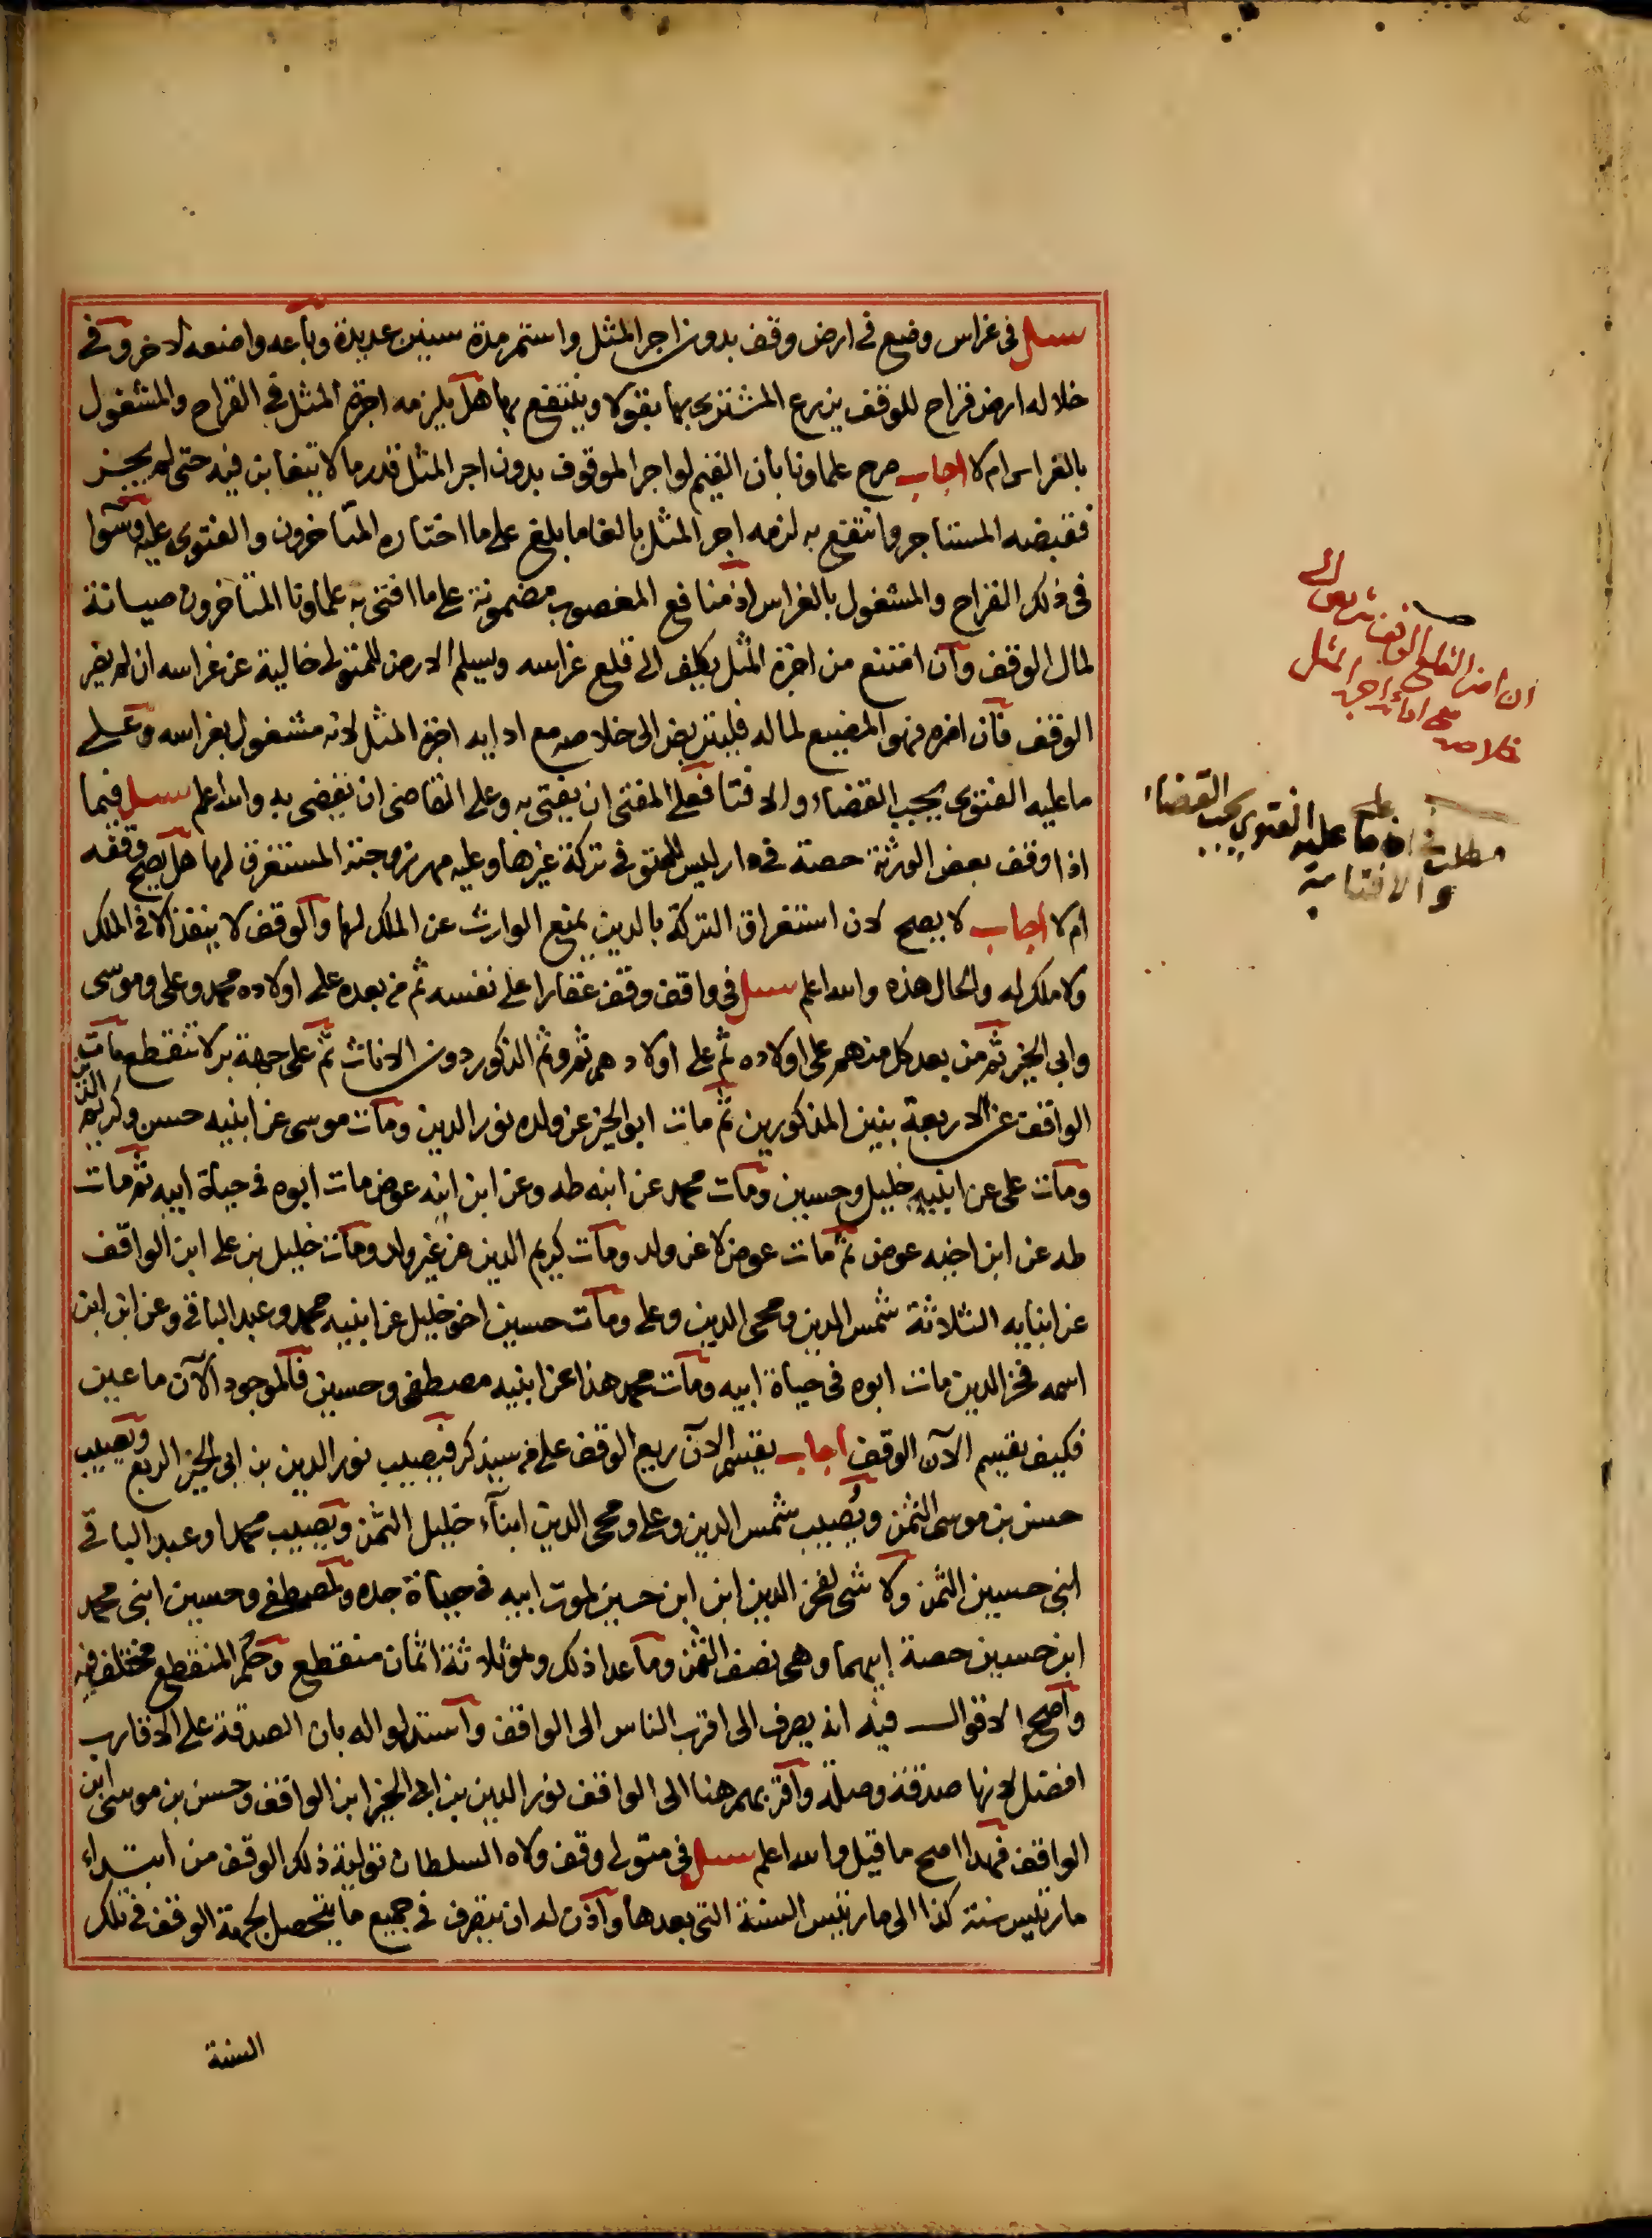 سئل في غراس وضع في ارض وقف بدون اجر المثل واستمر مدة سنين عديدة وباعه واضعه لاخر وفي
خلاله ارض قراح للوقف يزرع المشتري بها بقولا وينتفع بها هل يلزمه اجرة المثل في القراح والمشغول
بالغراس ام لا اجاب صرح علماونا بان القيم لو اجر الموقوف بدون اجر المثل قدر ما لا يتغابن فيه حتى لم يجز
فقبضه المستاجر وانتفع به لزمه اجر المثل بالغا ما بلغ على ما اختاره المتاخرون والفتوى عليه وسوا
في ذلك القراح والمشغول بالغراس اذ منافع المغصوب مضمونة على ما افتى به علماونا المتاخرون صيانة
لمال الوقف وان امتنع من اجرة المثل يكلف الى قلع غراسه ويسلم الارض للمتولى خالية عن غراسه ان لم يضر
الوقف فان اضره فهو المضيع لماله فليتربص الى خلاصه مع ادايه اجرة المثل لانه مشغول بغراسه وعلى
ما عليه الفتوى يجب القضاء والافتا فعلى المفتى ان يفتى به وعلى القاضى ان يقضى به والله اعلم سئل فيما
اذا وقف بعض الورثة حصة في دار ليس للمتوفى تركة غيرها وعليه مهر زوجته المستغرق لها هل يصح وقفه
ام لا اجاب لا يصح لان استغراق التركة بالدين يمنع الوارث عن الملك لها والوقف لا ينفذ الا في الملك
ولا ملك له والحال هذه والله اعلم سئل في واقف وقف عقارا على نفسه ثم من بعده على اولاده محمد وعلى وموسى
وابى الخير ثم من بعد كل منهم على اولاده ثم على اولادهم ثم وثم الذكور دون الاناث ثم على جهة بر لا تنقطع مات
الواقف عن الاربعة بنين المذكورين ثم مات ابو الخير عن ولده نور الدين ومات موسى عن ابنيه حسن وكريم الدين
ومات على عن ابنيه خليل وحسين ومات محمد عن ابنه طه وعن ابن ابنه عوض مات ابوه في حياة ابيه ثم مات
طه عن ابن اخيه عوض ثم مات عوض لا عن ولد ومات كريم الدين عن غير ولد ومات خليل بن على ابن الواقف
عن ابنايه الثلاثة شمس الدين ومحى الدين وعلى ومات حسين اخو خليل عن ابنيه محمد وعبد الباقى وعن ابن ابن
اسمه فخر الدين مات ابوه في حياة ابيه ومات محمد هذا عن ابنيه مصطفى وحسين فالموجود الآن ما عين
فكيف يقسم الآن الوقف اجاب يقسم الآن ريع الوقف على من سيذكر فيصيب نور الدين بن ابى الخير الربع ويصيب
حسن بن موسى الثمن ويصيب شمس الدين وعلى ومحى الدين ابنآء خليل الثمن ويصيب محمدا وعبد الباقى
ابنى حسين الثمن ولا شى لفخر الدين ابن ابن حسين لموت ابيه في حياة جده ولمصطفى وحسين ابنى محمد
ابن حسين حصة ابيهما وهى نصف الثمن وما عدا ذلك وهو ثلاثة اثمان منقطع وحكم المنقطع مختلف فيه
واصح الاقوال فيه انه يصرف الى اقرب الناس الى الواقف واستدلوا له بان الصدقة على الاقارب
افضل لانها صدقة وصلة واقربهم هنا الى الواقف نور الدين بن ابى الخير ابن الواقف وحسن بن موسى ابن
الواقف فهذا اصح ما قيل والله اعلم سئل في متولى وقف ولاه السلطان تولية ذلك الوقف من ابتداء
مارتيس سنة كذا الى مارتيس السنة التى بعدها واذن له ان يتصرف في جميع ما يتحصل لجهة الوقف في تلك
السنة
ان اضر القلع الوقف يتربص الى
خلاصه مع ادائه اجرة المثل
مطلب ما عليه الفتوى يجب القضاء
والافتا به